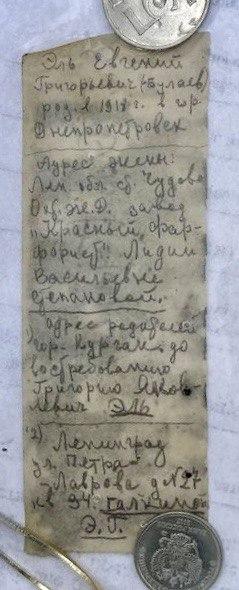 Эль Евгений
Григорьевич (Булаев)
род. в 1918 г. в гор.
Днепропетровск
Адрес жены:
Лен. обл. ст. Чудово
Окт. ж.д. завод
"Красный фар-
форист" Лидии
Васильевне
Степановой.
1) адрес родителей
гор. Курган до
востребованию
Григорию Яков-
левич Эль
2) Ленинград
ул. Петра-
Лаврова д №27
кв 94.
Э. Г.